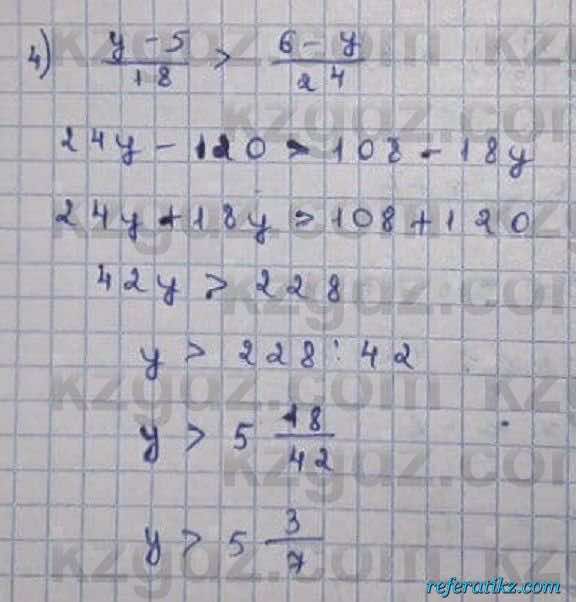 4) (y - 5)/18 > (6 - y)/24
24y - 120 > 108 - 18y
24y + 18y > 108 + 120
42y > 228
y > 228 : 42
y > 5 18/42
y > 5 3/7
kzgdz.com
referatikz.com